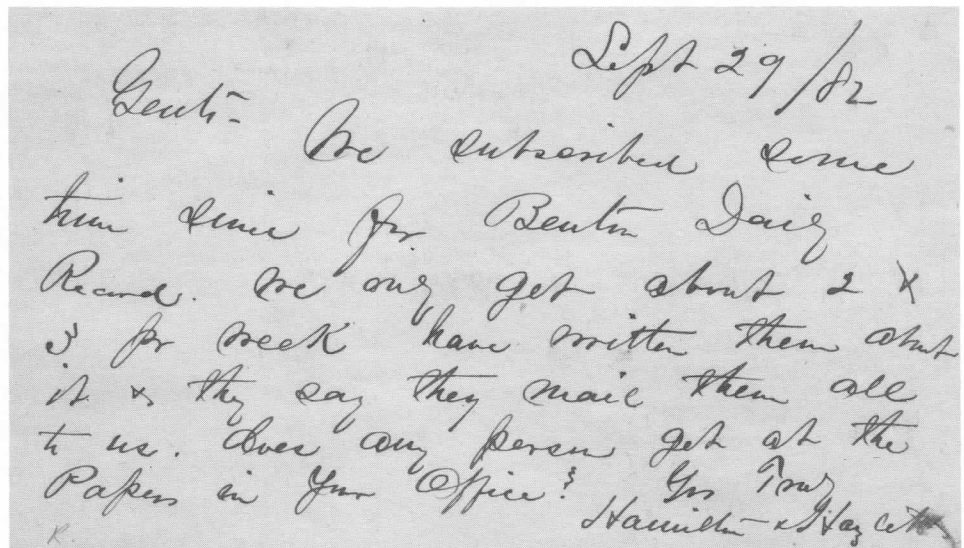 Sept 29/82
Gents-
We subscribed some
time since for Benton Daily
Record. We only get about 2 &
3 pr week have written them about
it & they say they mail them all
to us. does any person get at the
Papers in Your Office? Yrs Truly
Hamilton & Hazlett